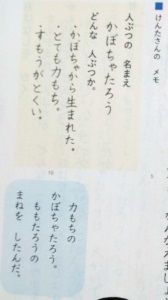 けんたさんの メモ
人ぶつの 名まえ
かぼちゃたろう
どんな 人ぶつか。
・かぼちゃから生まれた。
・とても力もち。
・すもうがとくい。
力もちの
かぼちゃたろう。
ももたろうの
まねを したんだ。